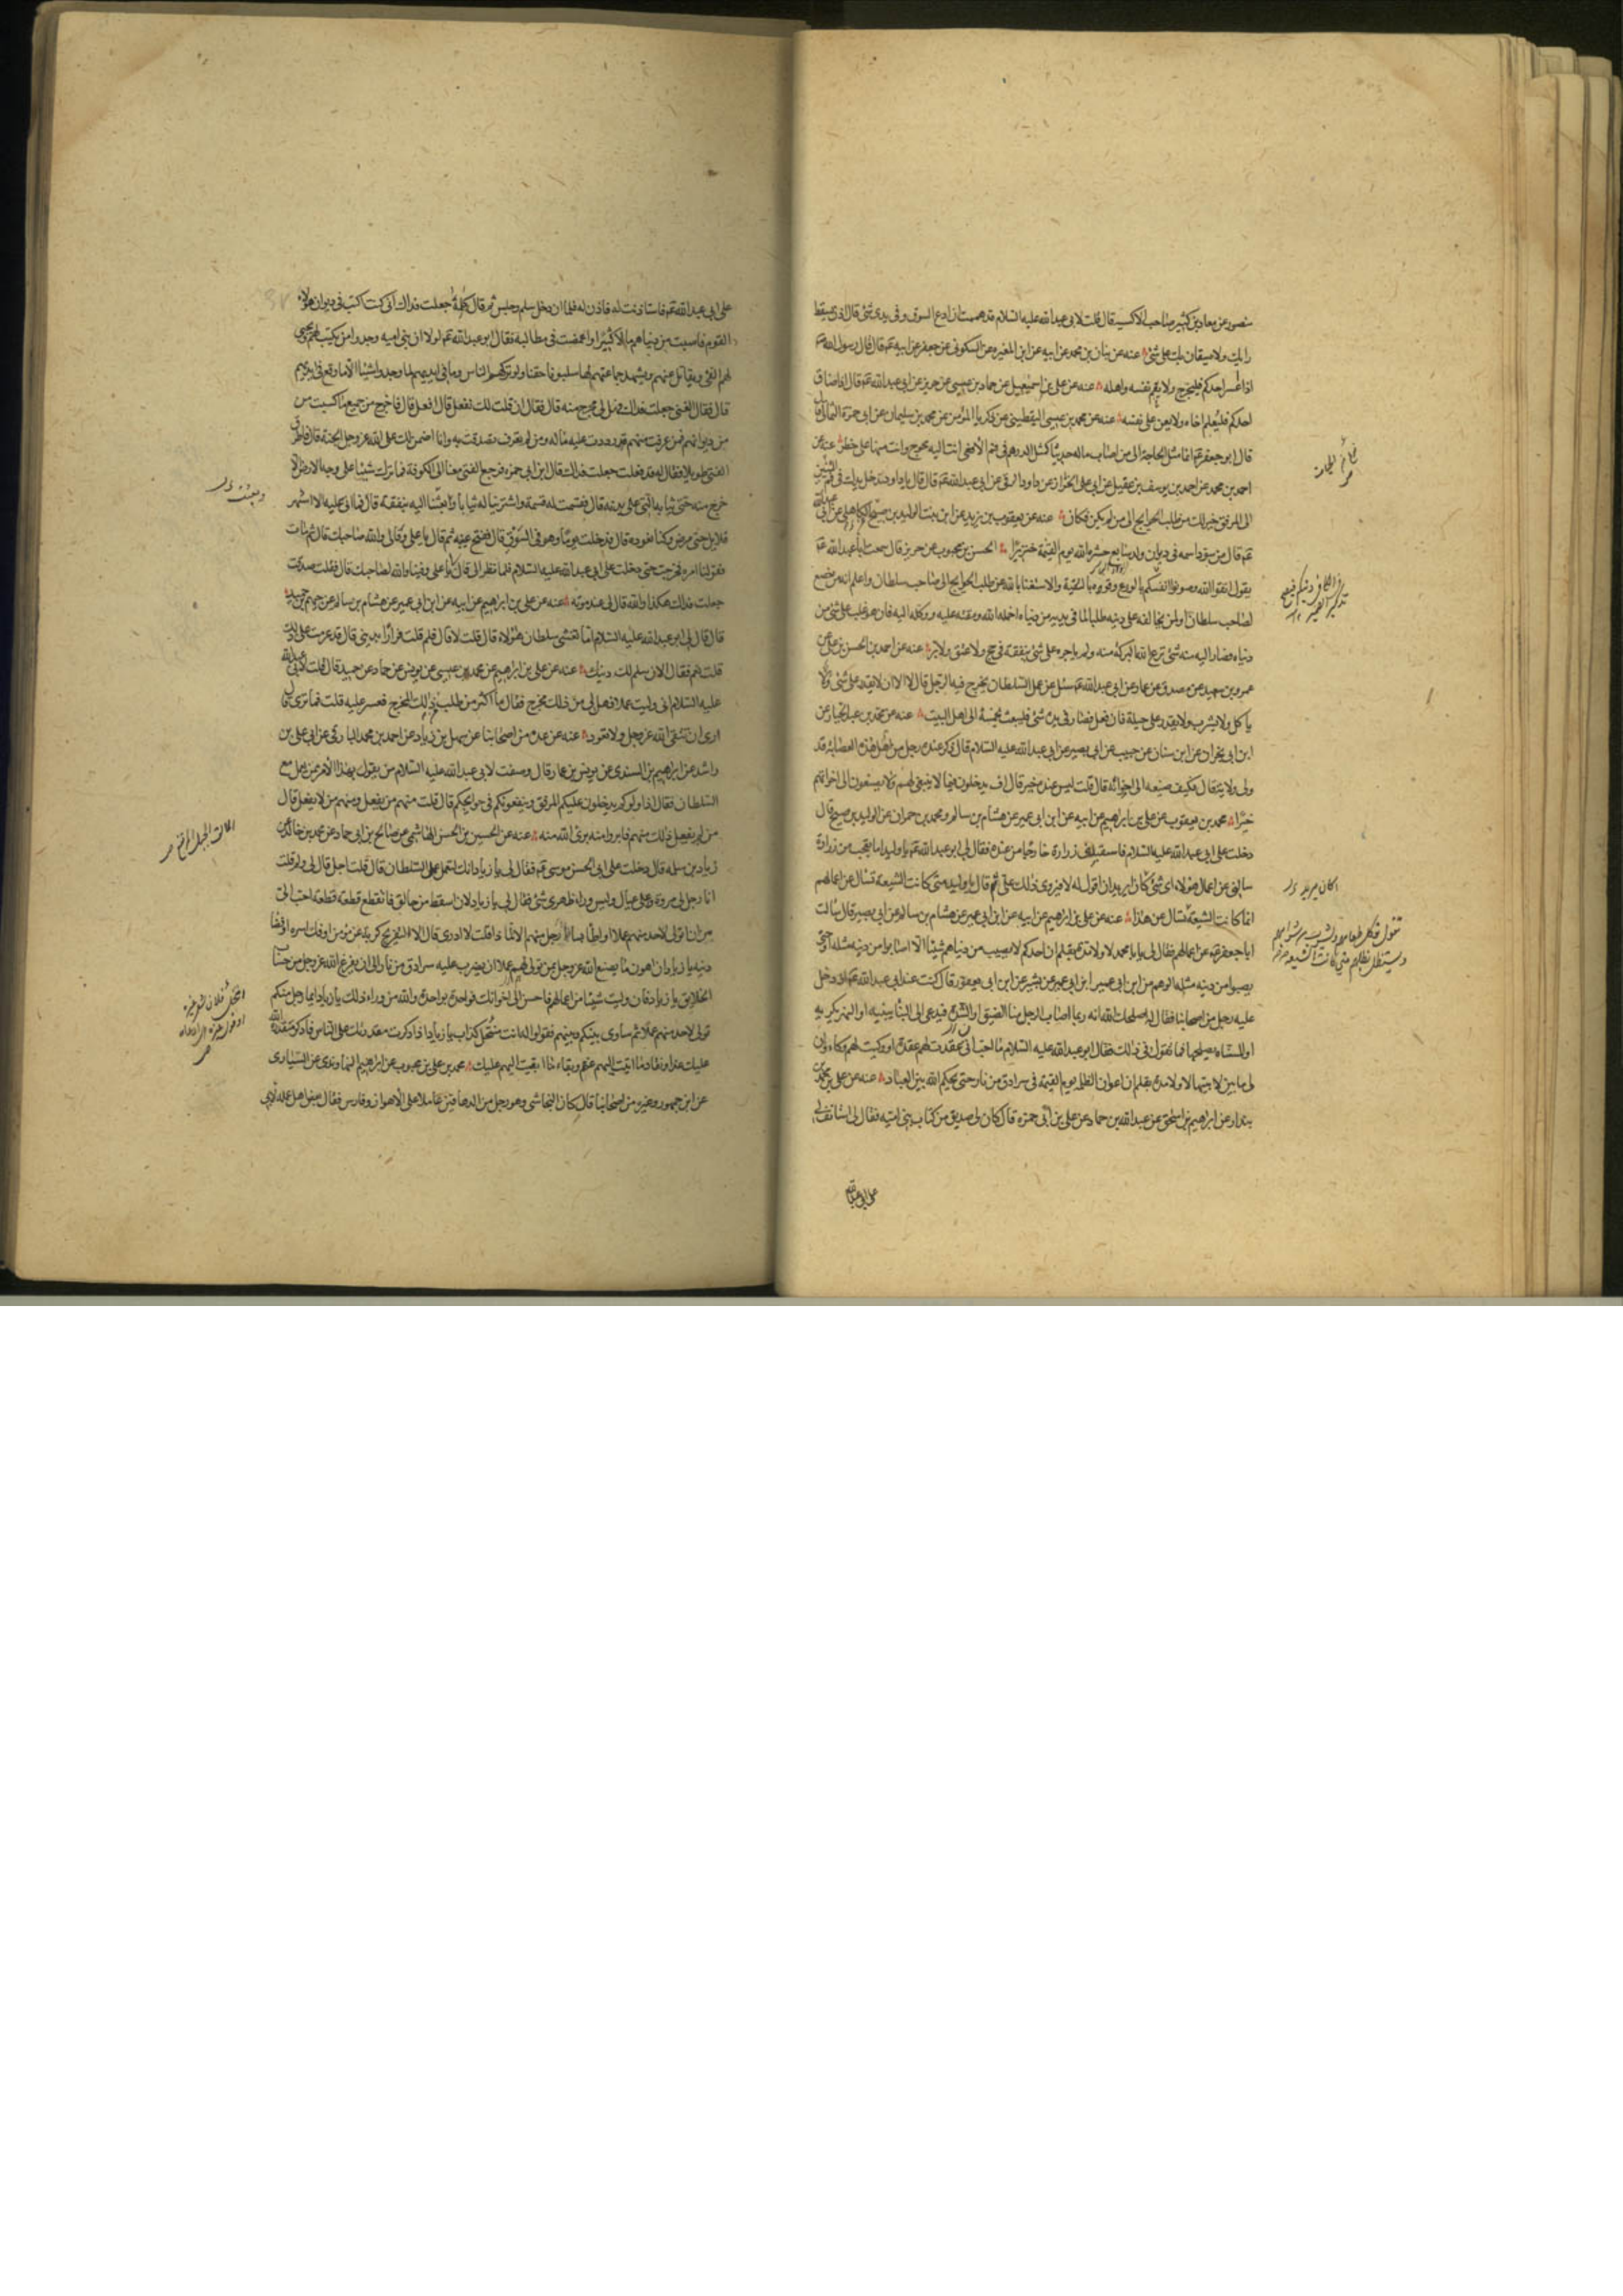 منصور عن معاذ بن كثير صاحب الاكسية قال قلت لابي عبد الله عليه السلام قد هممت ان ادع السوق وفي يدي شئ قال اذن يسقط
رايك ولا يستعان بك على شئ عنه عن بنان بن محمد عن ابيه عن ابن المغيره عن السكوني عن جعفر عن ابيه عم قال قال رسول الله ص
اذا اعسر احدكم فليخرج ولا يغم نفسه واهله عنه عن علي بن اسمعيل عن حماد بن عيسى عن حريز عن ابي عبد الله عم قال اذا ضاق
احدكم فليعلم اخاه ولا يعن على نفسه عنه عن محمد بن عيسى اليقطيني عن زكريا المؤمن عن محمد بن سليمان عن ابي حمزة الثمالي قال
قال ابو جعفر عم انما مثل الحاجة الى من اصاب ماله حديثا كمثل الدرهم في فم الافعى انت اليه محوج وانت منها على خطر عنه عن
احمد بن محمد عن احمد بن يوسف بن عقيل عن ابي علي الخزاز عن داود الرقي عن ابي عبد الله عم قال قال يا داود تدخل يدك في فم التنين
الى المرفق خير لك من طلب الحوايج الى من لم يكن فكان عنه عن يعقوب بن يزيد عن ابن بنت الوليد بن صبيح الكاهلي عن ابي عبد الله
عم قال من سود اسمه في ديوان ولد سابع حشره الله يوم القيمة خنزيرا الحسن بن محبوب عن حريز قال سمعت ابا عبد الله عم
يقول اتقوا الله وصونوا انفسكم بالورع وقووه بالتقية والاستغنا بالله عن طلب الحوايج الى صاحب سلطان واعلم انه من خضع
لصاحب سلطان او لمن يخالفه على دينه طلبا لما في يديه من دنياه اخمله الله ومقته عليه ووكله اليه فان هو غلب على شئ من
دنياه فصار اليه منه شئ نزع الله البركة منه ولم ياجره على شئ ينفقه في حج ولا عتق ولا بر عنه عن احمد بن الحسن بن علي عن
عمرو بن سعيد عن مصدق عن عمار عن ابي عبد الله عم سئل عن عمل السلطان يخرج فيه الرجل قال لا الا ان لا يقدر على شئ ولا
ياكل ولا يشرب ولا يقدر على حيلة فان فعل فصار في يده شئ فليبعث بخمسه الى اهل البيت عنه عن محمد بن عبد الجبار عن
ابن ابي نجران عن ابن سنان عن حبيب عن ابي بصير عن ابي عبد الله عليه السلام قال ذكر عنده رجل من اهل هذه العصابة قد
ولي ولاية فقال فكيف صنيعه الى اخوانه قال قلت ليس عنده خير قال اف يدخلون فيما لا ينبغي لهم ولا يصنعون الى اخوانهم
خيرا محمد بن يعقوب عن علي بن ابراهيم عن ابيه عن ابن ابي عمير عن هشام بن سالم ومحمد بن حمران عن الوليد بن صبيح قال
دخلت على ابي عبد الله عليه السلام فاستقبلني زرارة خارجا من عنده فقال لي ابو عبد الله عم يا وليد اما تعجب من زرارة
سالني عن اعمال هؤلاء اي شئ كان يريد ان اقول له لا فيروى ذلك علي ثم قال يا وليد متى كانت الشيعة تسال عن اعمالهم
انما كانت الشيعة تسال عن هذا عنه عن علي بن ابراهيم عن ابيه عن ابن ابي عمير عن هشام بن سالم عن ابي بصير قال سالت
ابا جعفر عم عن اعمالهم فقال لي يا با محمد لا ولا مدة بقلم ان احدكم لا يصيب من دنياهم شيئا الا اصابوا من دينه مثله او حتى
يصيبوا من دينه مثله الوهم من ابن ابي عمير ابن ابي عمير عن بشير عن ابن ابي يعفور قال كنت عند ابي عبد الله عم اذ دخل
عليه رجل من اصحابنا فقال له اصلحك الله انه ربما اصاب الرجل منا الضيق او الشدة فيدعى الى البنا يبنيه او النهر يكريه
او المسناه يصلحها فما تقول في ذلك فقال ابو عبد الله عليه السلام ما احب اني عقدت لهم عقدة او وكيت لهم وكاء وان
لي ما بين لابتيها لا ولا مدة بقلم ان اعوان الظلمه يوم القيمة في سرادق من نار حتى يحكم الله بين العباد عنه عن علي بن محمد بن
بندار عن ابراهيم بن اسحق عن عبد الله بن حماد عن علي بن ابي حمزه قال كان لي صديق من كتاب بني اميه فقال لي استاذن لي
على ابي عبد الله
اكان يريد
تقول فكل طعامهم ولشرب من شرابهم
ويستظل بظلهم متى كانت الشيعة
على ابي عبد الله عم فاستاذنت له فاذن له فلما ان دخل سلم وجلس ثم قال جعلت فداك اني كنت اكتب في ديوان هؤلاء
القوم فاصبت من دنياهم مالا كثيرا واغمضت في مطالبه فقال ابو عبد الله عم لولا ان بني اميه وجدوا من يكتب لهم ويجبي
لهم الفئ ويقاتل عنهم ويشهد جماعتهم لما سلبونا حقنا ولو تركهم الناس وما في ايديهم لما وجدوا شيئا الا ما وقع في ايديهم
قال فقال الفتى جعلت فداك فهل لي مخرج منه قال فقال ان قلت لك تفعل قال افعل قال فاخرج من جميع ما كسبت من
من ديوانهم فمن عرفت منهم رددت عليه ماله ومن لم تعرف تصدقت به وانا اضمن لك على الله عز وجل الجنة قال فاطرق
الفتى طويلا فقال له قد فعلت جعلت فداك قال ابن ابي حمزه فرجع الفتى معنا الى الكوفة فما ترك شيئا على وجه الارض الا
خرج منه حتى ثيابه التي على بدنه قال فقسمت له قسمة واشترينا له ثيابا وبعثنا اليه بنفقة قال فما اتى عليه الا اشهر
قلايل حتى مرض وكنا نعوده قال فدخلت يوما وهو في السوق قال ففتح عينيه ثم قال يا علي وفى لي والله صاحبك قال ثم مات
فتولينا امره فخرجت حتى دخلت على ابي عبد الله عليه السلام فلما نظر الي قال يا علي وفينا والله لصاحبك قال فقلت صدقت
جعلت فداك هكذا والله قال لي عند موته عنه عن علي بن ابراهيم عن ابيه عن ابن ابي عمير عن هشام بن سالم عن جهم بن حميد
قال قال لي ابو عبد الله عليه السلام اما تغشى سلطان هؤلاء قال قلت لا قال فلم قلت فرارا بديني قال قد عزمت على ذلك
قلت نعم فقال الان سلم لك دينك عنه عن علي بن ابراهيم عن محمد بن عيسى عن يونس عن حماد عن حميد قال قلت لابي عبد الله
عليه السلام اني وليت عملا فهل لي من ذلك مخرج فقال ما اكثر من طلب من ذلك المخرج فعسر عليه قلت فما ترى قال
ارى ان تتقي الله عز وجل ولا تعود عنه عن عده من اصحابنا عن سهل بن زياد عن احمد بن محمد البارقي عن ابي علي بن
راشد عن ابراهيم بن السندي عن يونس بن عمار قال وصفت لابي عبد الله عليه السلام من يقول بهذا الامر ممن يعمل مع
السلطان فقال اذا ولوكم يدخلون عليكم المرفق وينفعونكم في حوايجكم قال قلت منهم من يفعل ومنهم من لا يفعل قال
من لم يفعل ذلك منهم فابروا منه برئ الله منه عنه عن الحسين بن الحسن الهاشمي عن صالح بن ابي حماد عن محمد بن خالد عن
زياد بن سلمه قال دخلت على ابي الحسن موسى عم فقال لي يا زياد انك لتعمل عمل السلطان قال قلت اجل قال لي ولم قلت
انا رجل لي مروة وعلي عيال وليس وراء ظهري شئ فقال لي يا زياد لان اسقط من حالق فاتقطع قطعة قطعة احب الي
من ان اتولى لاحد منهم عملا او اطا بساط رجل منهم الا لماذا قلت لا ادري قال الا لتفريج كربة عن مؤمن او فك اسره او قضا
دينه يا زياد ان اهون ما يصنع الله عز وجل بمن تولى لهم عملا ان يضرب عليه سرادق من نار الى ان يفرغ الله عز وجل من حساب
الخلايق يا زياد فان وليت شيئا من اعمالهم فاحسن الى اخوانك فواحدة بواحدة والله من وراء ذلك يا زياد ايما رجل منكم
تولى لاحد منهم عملا ثم ساوى بينكم وبينهم فقولوا له انت منتحل كذاب يا زياد اذا ذكرت مقدرتك على الناس فاذكر مقدرة الله
عليك غدا ونفاد ما اتيت اليهم عنهم وبقاء ما ابقيت اليهم عليك محمد بن علي بن محبوب عن ابراهيم النهاوندي عن السياري
عن ابن جمهور وغيره من اصحابنا قال كان النجاشي وهو رجل من الدهاقين عاملا على الاهواز وفارس فقال بعض اهل عمله لابي